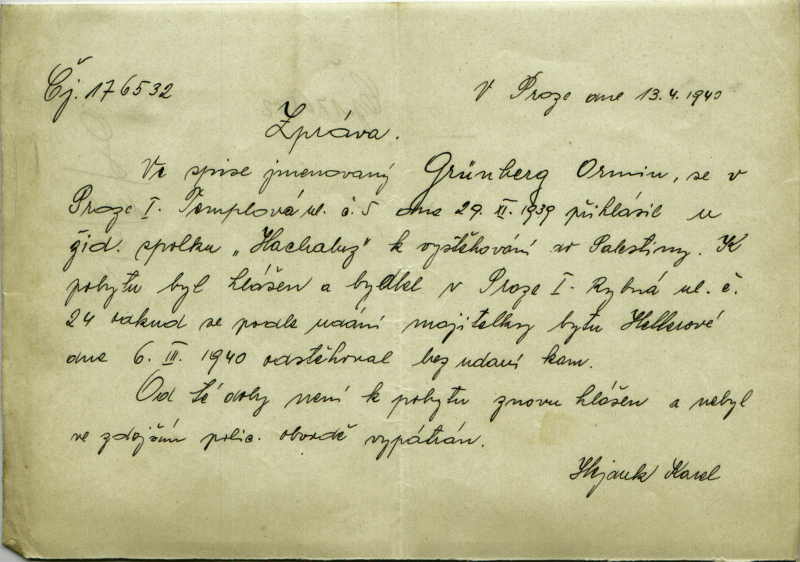 Čj. 176532
V Praze dne 13.4.1940
Zpráva.
Ve spise jmenovaný Grünberg Ormin, se v
Praze I. Templová ul. č. 5 dne 29. XI. 1939 přihlásil u
žid. spolku „Hachaluz" k vystěhování do Palestiny. K
pobytu byl hlášen a bydlel v Praze I. Rybná ul. č.
24 odkud se podle udání majitelky bytu Hellerové
dne 6. III. 1940 odstěhoval bez udání kam.
Od té doby není k pobytu znovu hlášen a nebyl
ve zdejším polic. obvodě vypátrán.
Karel